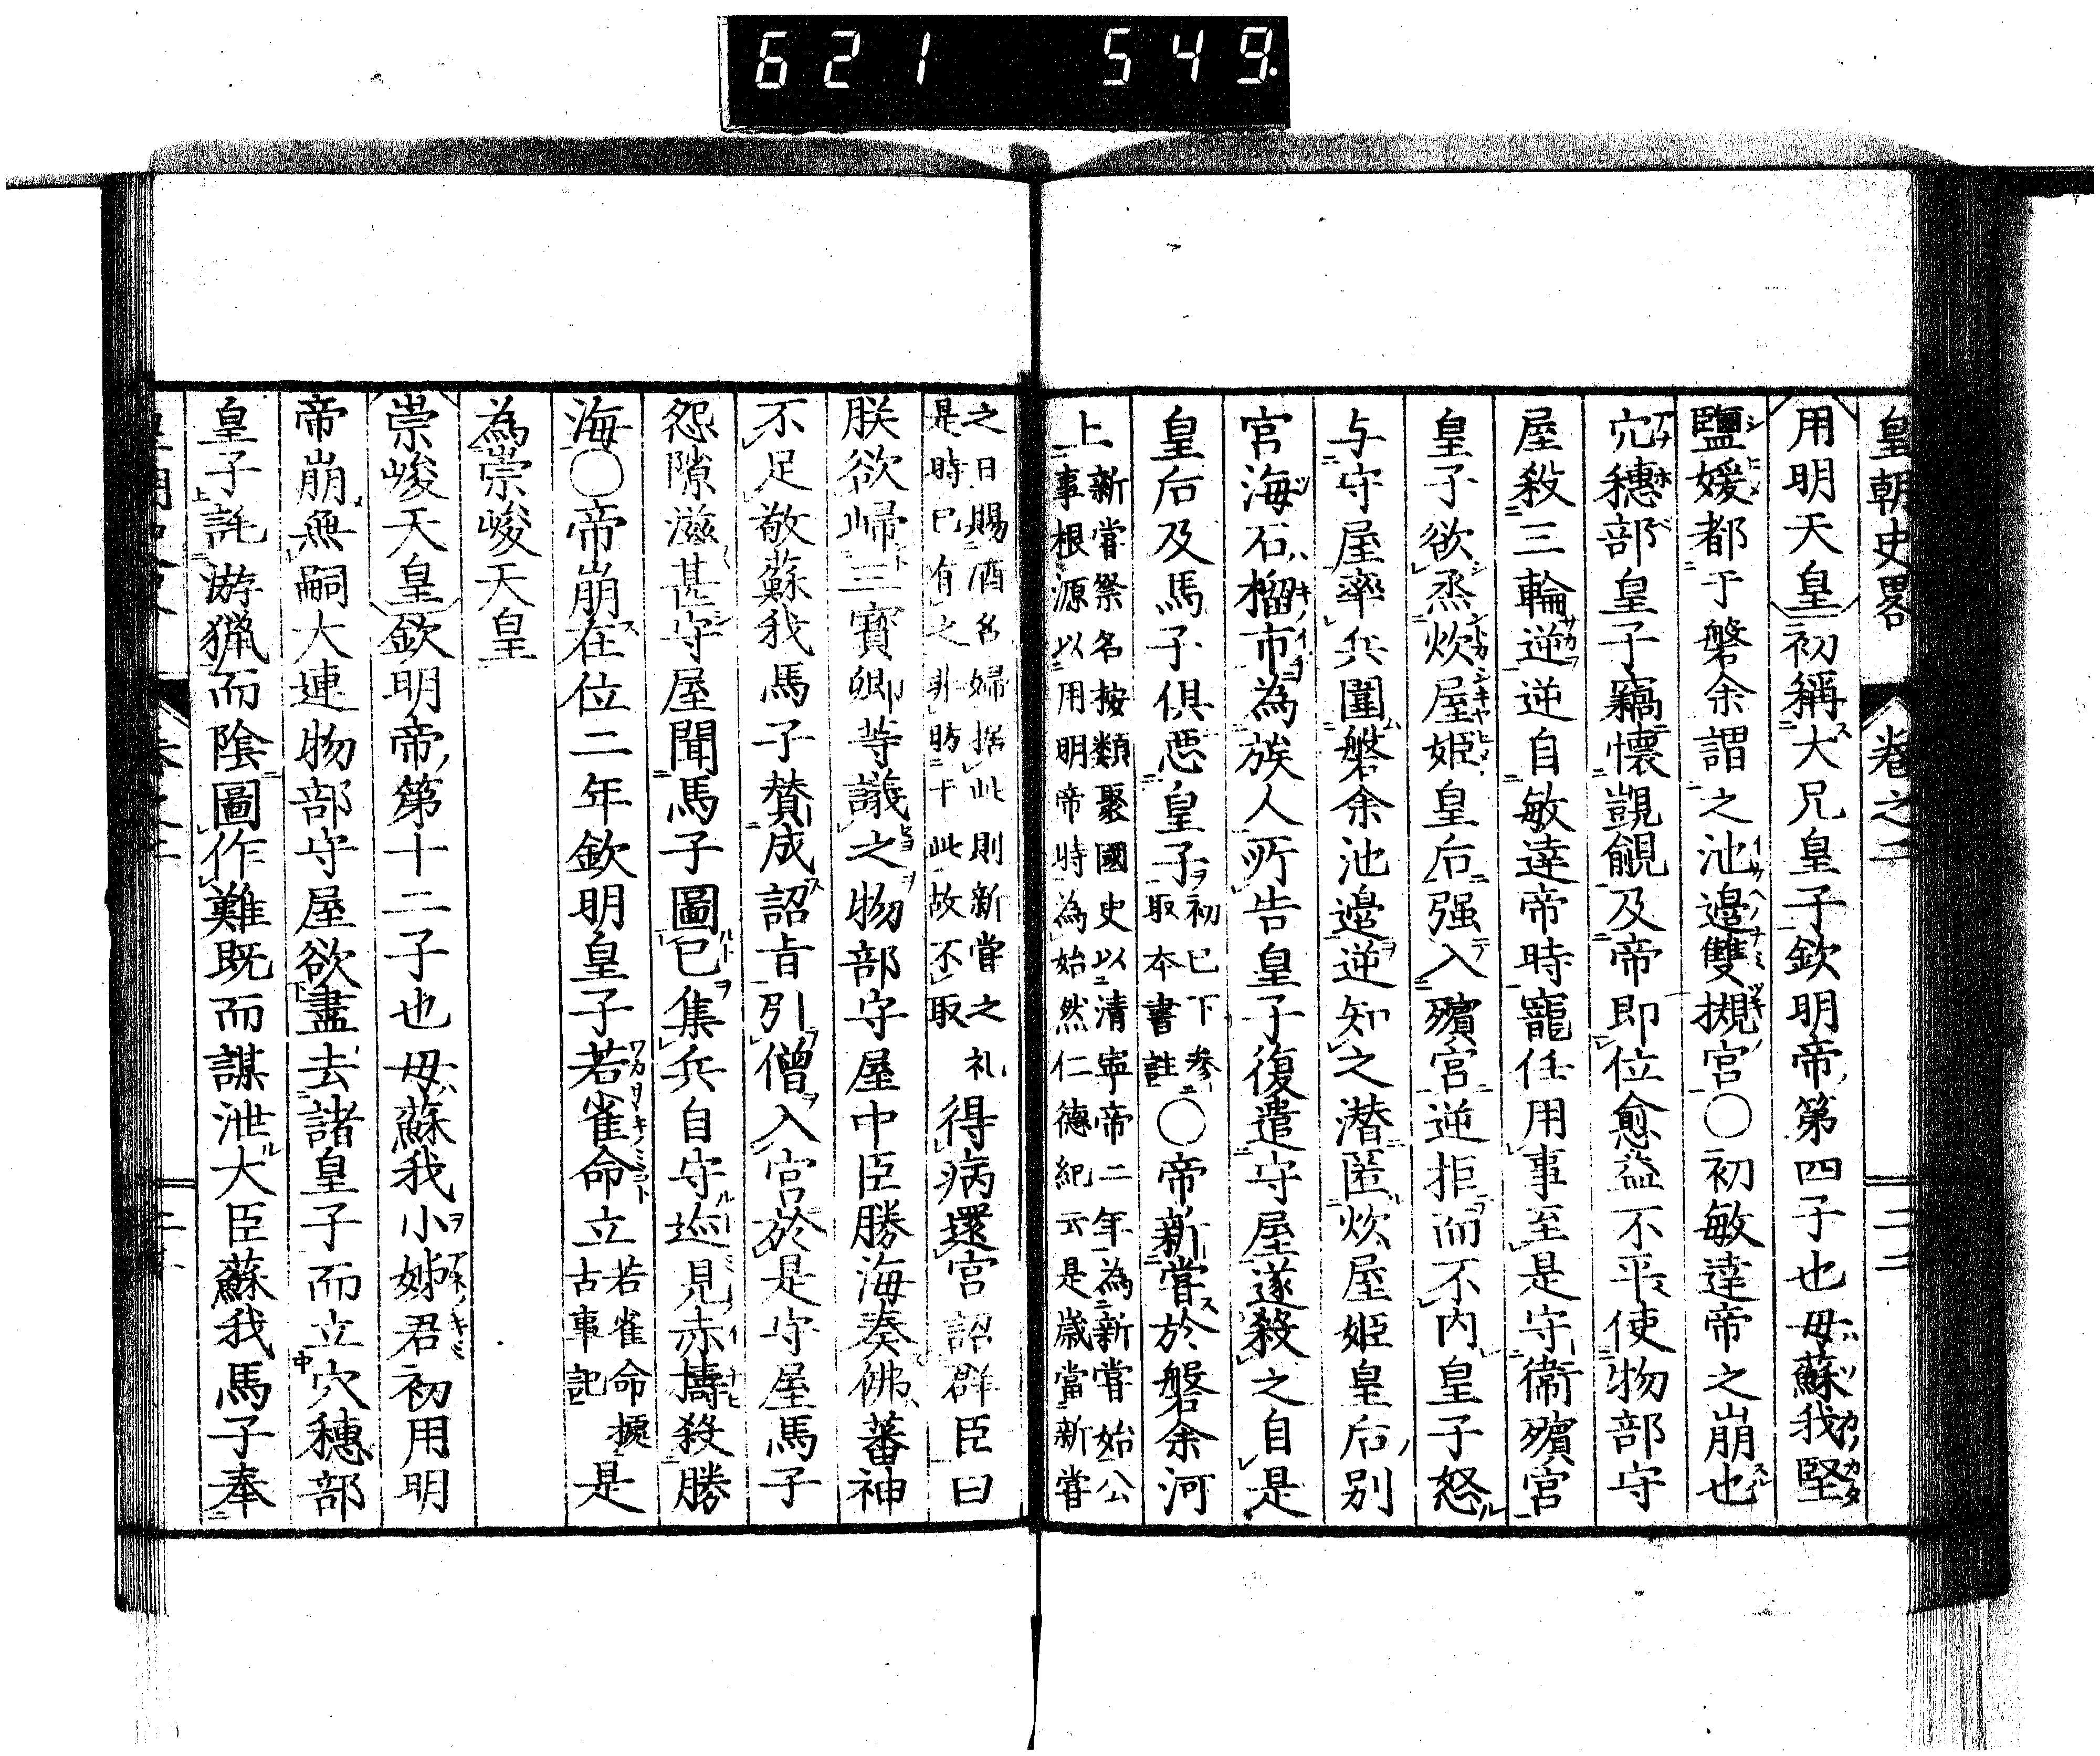 621 549
皇朝史畧 卷之二 二一
用明天皇初稱大兄皇子欽明帝第四子也母蘇我堅
鹽媛都于磐余謂之池邉雙槻宮○初敏達帝之崩也
穴穗部皇子竊懷覬覦及帝即位愈益不平使物部守
屋殺三輪逆逆自敏達帝時寵任用事至是守衞殯宮
皇子欲烝炊屋姫皇后强入殯宮逆拒而不内皇子怒
与守屋率兵圍磐余池邉逆知之潜匿炊屋姫皇后別
宮海石榴市為族人所告皇子復遣守屋遂殺之自是
皇后及馬子俱惡皇子初已下参取本書註○帝新嘗於磐余河
上新嘗祭名按類聚國史以清寧帝二年為新嘗始公事根源以用明帝時為始然仁德紀云是歳當新嘗
之日賜酒名婦据此則新嘗之礼是時已有之非昉于此故不取得病還宮詔群臣曰
朕欲帰三寳卿等議之物部守屋中臣勝海奏佛蕃神
不足敬蘇我馬子賛成詔㫖引僧入宮於是守屋馬子
怨隙滋甚守屋聞馬子圖已集兵自守𨒪見赤檮殺勝
海○帝崩在位二年欽明皇子若雀命立若雀命據古事記是
為崇峻天皇
崇峻天皇欽明帝第十二子也母蘇我小姊君初用明
帝崩無嗣大連物部守屋欲盡去諸皇子而立穴穗部
皇子託游獵而陰圖作難既而謀泄大臣蘇我馬子奉